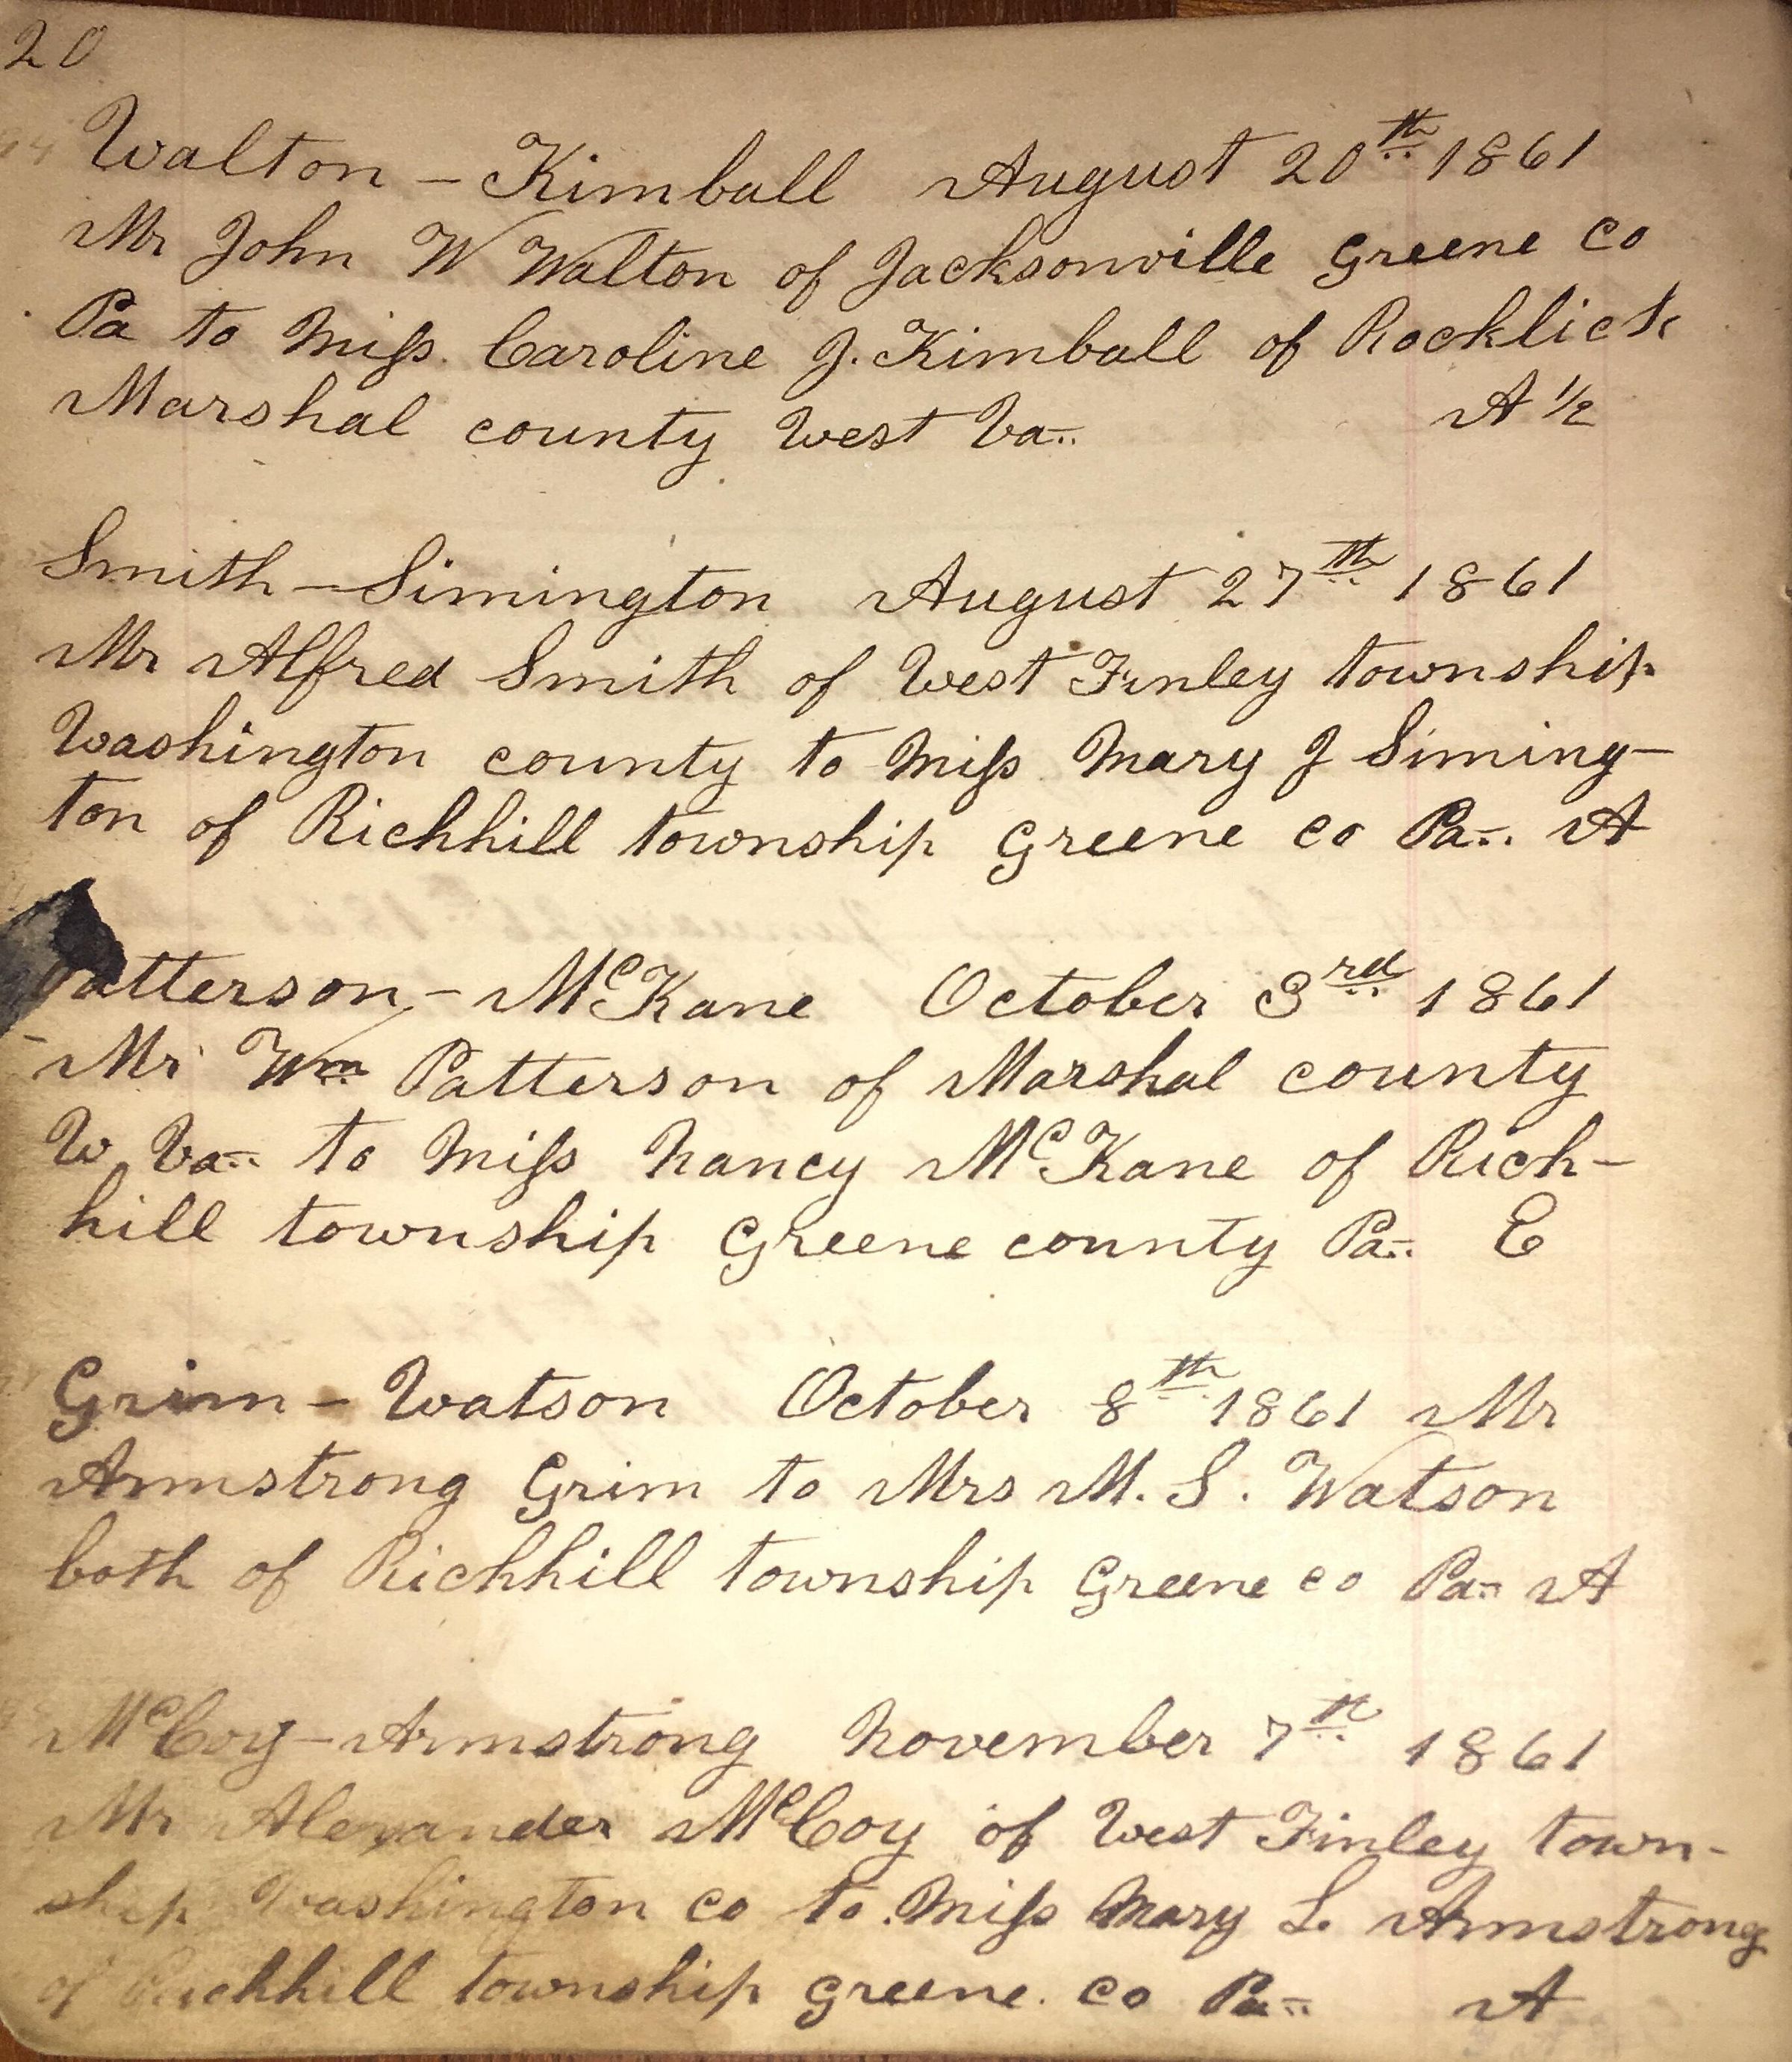 20
Walton – Kimball August 20th 1861
Mr John W Walton of Jacksonville Greene Co
Pa to Miss. Caroline J. Kimball of Rocklick
Marshal county West Va.. A ½
Smith – Simington August 27th 1861
Mr Alfred Smith of West Finley township
Washington county to Miss Mary J Siming-
ton of Richhill township Greene co Pa.. A
Patterson – McKane October 3rd 1861
Mr Wm Patterson of Marshal county
W Va.. to Miss Nancy McKane of Rich-
hill township Greene county Pa.. E
Grim – Watson October 8th 1861 Mr
Armstrong Grim to Mrs M. S. Watson
both of Richhill township Greene co Pa.. A
McCoy – Armstrong November 7th 1861
Mr Alexander McCoy of West Finley town-
ship Washington co to Miss Mary L. Armstrong
of Richhill township Greene. Co Pa.. A